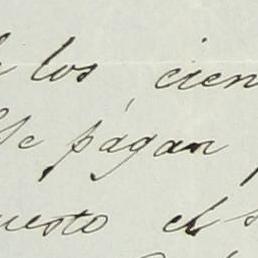 los cien
se pagan
uesto el s